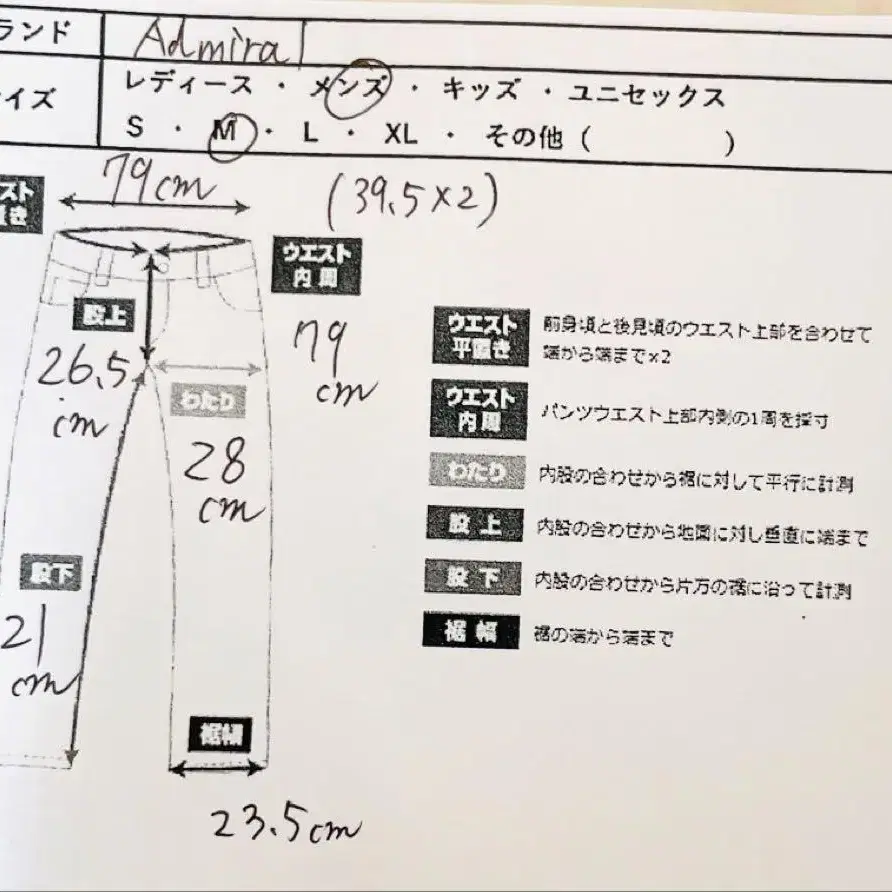 ランド Admiral
イズ レディース ・ メンズ ・ キッズ ・ ユニセックス
S ・ M ・ L ・ XL ・ その他 ( )
79cm (39.5×2)
スト
置き
ウエスト
内周
股上
79
cm
26.5
cm
わたり
28
cm
股下
21
cm
裾幅
23.5cm
ウエスト
平置き
前身頃と後見頃のウエスト上部を合わせて
端から端まで×2
ウエスト
内周
パンツウエスト上部内側の1周を採寸
わたり 内股の合わせから裾に対して平行に計測
股上 内股の合わせから地面に対し垂直に端まで
股下 内股の合わせから片方の裾に沿って計測
裾幅 裾の端から端まで